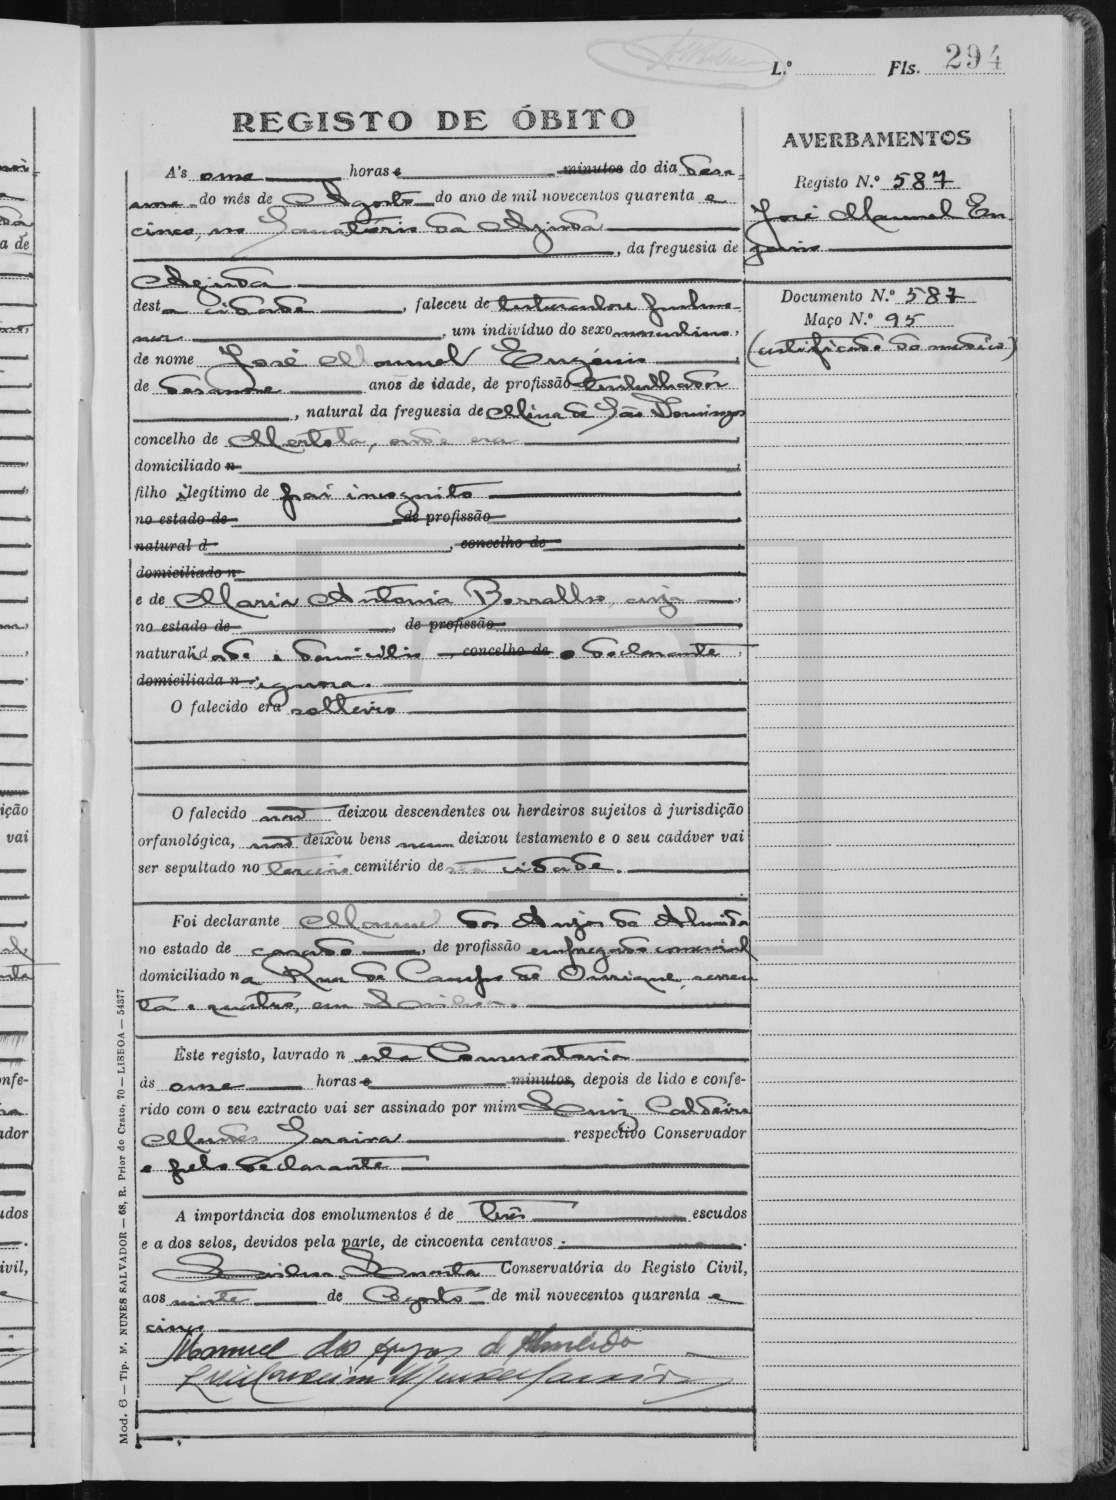 L.º Fls. 294
REGISTO DE ÓBITO
A's onze horas e minutos do dia deza-
do mês de Agosto do ano de mil novecentos quarenta e
cinco, no Sanatório da Ajuda
, da freguesia de
Ajuda
desta cidade, faleceu de tuberculose pulmo-
nar, um indivíduo do sexo masculino,
de nome José Manuel Eugénio
de dezanove anos de idade, de profissão trabalhador
, natural da freguesia de Mina de São Domingos
concelho de Mertola, onde era
domiciliado n
filho ilegítimo de pai incognito
no estado de de profissão
natural d , concelho de
domiciliado n
e de Maria Antonia Borralho, cuja
no estado de , de profissão
naturalidade e domicílio concelho de o declarante
domiciliada n ignora.
O falecido era solteiro
O falecido não deixou descendentes ou herdeiros sujeitos à jurisdição
orfanológica, não deixou bens nem deixou testamento e o seu cadáver vai
ser sepultado no terceiro cemitério desta cidade.
Foi declarante Manuel dos Anjos de Almeida
no estado de casado, de profissão empregado comercial
domiciliado na Rua de Campo de Ourique, sessen
ta e quatro, em Lisboa.
Este registo, lavrado nesta Conservatoria
às onze horas e minutos, depois de lido e confe-
rido com o seu extracto vai ser assinado por mim Luiz Caldeira
Mendes Saraiva respectivo Conservador
e pelo declarante
A importância dos emolumentos é de três escudos
e a dos selos, devidos pela parte, de cincoenta centavos.
Lisboa, Quarta Conservatória do Registo Civil,
aos vinte de Agosto de mil novecentos quarenta e
cinco
Manuel dos Anjos de Almeida
Mod. 6 — Tip. M. NUNES SALVADOR — 68, R. Prior do Crato, 70 — LISBOA — 54377
AVERBAMENTOS
Registo N.º 587
José Manuel Eu
genio
Documento N.º 587
Maço N.º 95
(certificado do medico)